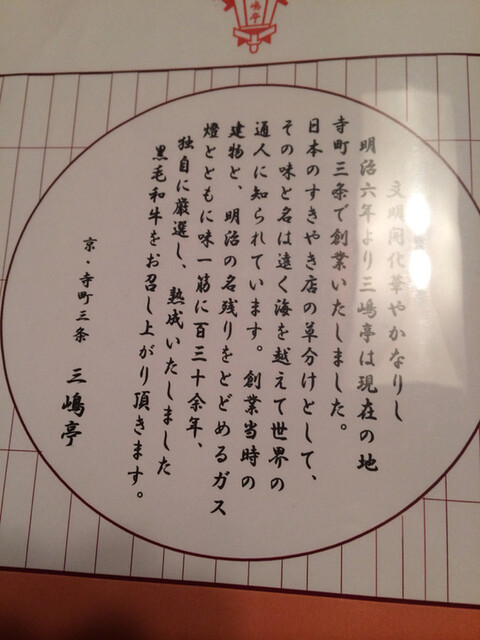 嶋亭
文明開化華やかなりし
明治六年より三嶋亭は現在の地
寺町三条で創業いたしました。
日本のすきやき店の草分けとして、
その味と名は遠く海を越えて世界の
通人に知られています。創業当時の
建物と、明治の名残りをとどめるガス
燈とともに味一筋に百三十余年、
独自に厳選し、熟成いたしました
黒毛和牛をお召し上がり頂きます。
京・寺町三条 三嶋亭